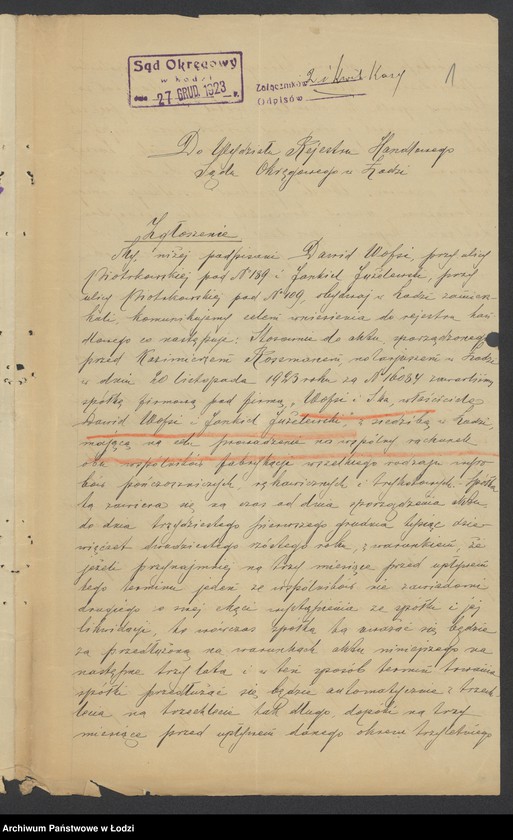 Sąd Okręgowy
w Łodzi
dnia 27 GRUD. 1923 r.
Załączników 2 i kwit Kasy
Odpisów
1
Do Wydziału Rejestru Handlowego
Sądu Okręgowego w Łodzi
Zgłoszenie
My, niżej podpisani Dawid Wofsi, przy ulicy
Piotrkowskiej pod N 189 i Jankiel Juzelewski, przy
ulicy Piotrkowskiej pod N 109, obydwaj w Łodzi zamiesz-
kali, komunikujemy celem wniesienia do rejestru han-
dlowego co następuje: Stosownie do aktu, sporządzonego
przed Kazimierzem Rossmanem, notarjuszem w Łodzi
w dniu 20 listopada 1923 roku za N 16084 zawarliśmy
spółkę firmową pod firmą „Wofsi i Ska, właściciele
Dawid Wofsi i Jankiel Juzelewski", z siedzibą w Łodzi,
mającą na celu prowadzenie na wspólny rachunek
obu wspólników fabrykacji wszelkiego rodzaju wyro-
bów pończoszniczych, rękawicznych i trykotowych. Spółka
ta zawiera się na czas od dnia sporządzenia aktu
do dnia trzydziestego pierwszego grudnia tysiąc dzie-
więćset dwudziestego szóstego roku, z warunkiem, że
jeżeli przynajmniej na trzy miesiące przed upływem
tego terminu jeden ze wspólników nie zawiadomi
drugiego o swej chęci wystąpienia ze spółki i jej
likwidacji, to wówczas spółka ta uważać się będzie
za przedłużoną na warunkach aktu niniejszego na
następne trzy lata i w ten sposób termin trwania
spółki przedłużać się będzie automatycznie z trzech
lecia na trzechlecie tak długo, dopóki na trzy
miesiące przed upływem danego okresu trzyletniego
Archiwum Państwowe w Łodzi